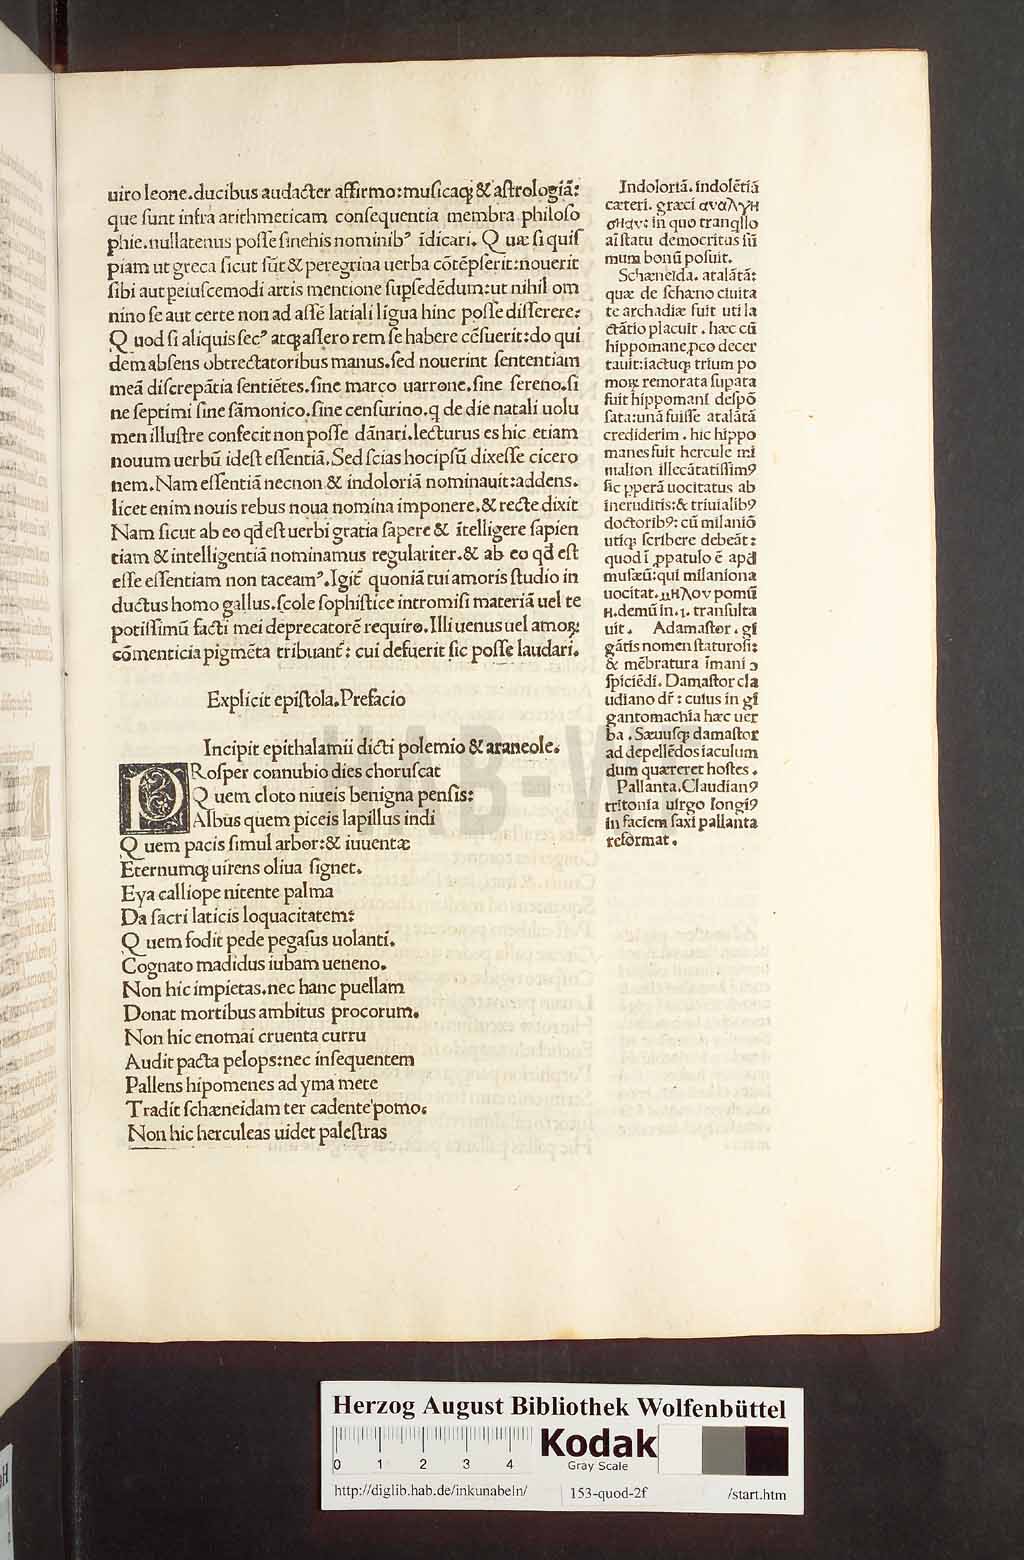 uiro leone.ducibus audacter affirmo:musicaqꝫ & astrologiā:
que sunt infra arithmeticam consequentia membra philoso
phie.nullatenus posse sinehis nominibꝰ īdicari. Quæ si quis
piam ut greca sicut sūt & peregrina uerba cōtēpserit:nouerit
sibi aut peiuscemodi artis mentione supsedēdum:ut nihil om
nino se aut certe non ad assē latiali līgua hinc posse disserere:
Quod si aliquis secꝰ atqꝫ astero rem se habere cēsuerit:do qui
dem absens obtrectatoribus manus.sed nouerint sententiam
meā discrepātia sentiētes.sine marco uarrone.sine sereno.si
ne septimi sine sāmonico.sine censurino.q de die natali uolu
men illustre confecit non posse dānari.lecturus es hic etiam
nouum uerbū idest essentiā.Sed scias hocipsū dixesse cicero
nem.Nam essentiā necnon & indoloriā nominauit:addens.
licet enim nouis rebus noua nomina imponere.& recte dixit
Nam sicut ab eo qd est uerbi gratia sapere & ītelligere sapien
tiam & intelligentiā nominamus regulariter.& ab eo qd est
esse essentiam non taceamꝰ.Igit̄ quoniā tui amoris studio in
ductus homo gallus.scole sophistice intromisi materiā uel te
potissimū facti mei deprecatorē requiro.Illi uenus uel amoꝝ
cōmenticia pigmēta tribuant̄: cui defuerit sic posse laudari.
Explicit epistola.Prefacio
Incipit epithalamii dicti polemio & araneole.
PRosper connubio dies choruscat
Quem cloto niueis benigna pensis:
Albus quem piceis lapillus indi
Quem pacis simul arbor:& iuuentæ
Eternumqꝫ uirens oliua signet.
Eya calliope nitente palma
Da sacri laticis loquacitatem:
Quem fodit pede pegasus uolanti.
Cognato madidus iubam ueneno.
Non hic impietas.nec hanc puellam
Donat mortibus ambitus procorum.
Non hic enomai cruenta curru
Audit pacta pelops:nec insequentem
Pallens hipomenes ad yma mete
Tradit schæneidam ter cadente pomo.
Non hic herculeas uidet palestras
Indoloriā. indolētiā
cæteri. græci αναλγη
σηαν: in quo tranqllo
aī statu democritus sū
mum bonū posuit.
Schæneida. atalātā:
quæ de schæno ciuita
te archadiæ fuit uti la
ctātio placuit. hæc cū
hippomane ꝓco decer
tauit:iactuqꝫ trium po
moꝝ remorata supata
fuit hippomani despō
sata:unā fuisse atalātā
crediderim. hic hippo
manes fuit hercule mi
malion illecātatissimꝰ
sic pperā uocitatus ab
ineruditis:& triuialibꝰ
doctoribꝰ: cū milaniō
utiqꝫ scribere debeāt:
quod ī ꝓpatulo ē apd
musæū:qui milaniona
uocitat. μηλον pomū
η.demū in.ι. transulta
uit. Adamastor. gī
gātis nomen staturosi:
& mēbratura īmani ɔ
spiciēdi. Damastor cla
udiano dr̄: cuius in gī
gantomachia hæc uer
ba. Sæuusqꝫ damastor
ad depellēdos iaculum
dum quæreret hostes.
Pallanta. Claudianꝰ
tritonia uirgo longiꝰ
in faciem saxi pallanta
reformat.
HAB-W
Herzog August Bibliothek Wolfenbüttel
0 1 2 3 4
Kodak
Gray Scale
http://diglib.hab.de/inkunabeln/ 153-quod-2f /start.htm